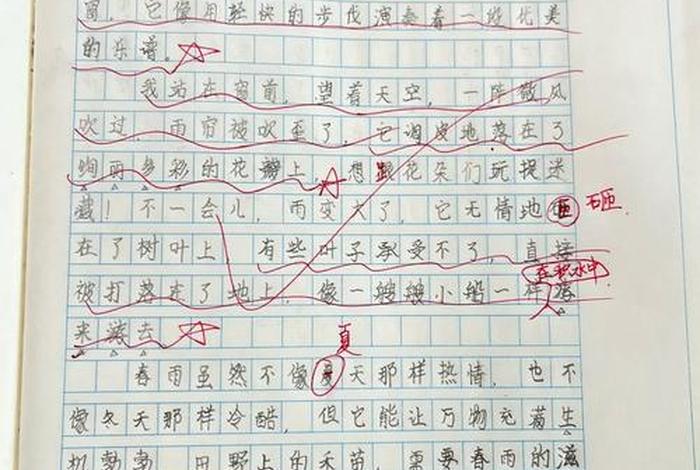 窗，它像用轻快的步伐演奏着一段优美
的乐谱。
我站在窗前，望着天空，一阵微风
吹过，雨帘被吹歪了，它调皮地落在了
绚丽多彩的花瓣上，想跟花朵们玩捉迷
藏！不一会儿，雨变大了，它无情地 砸
在了树叶上，有些叶子承受不了，直接
在积水中
被打落在了地上，像一艘艘小船一样荡
来荡去
夏
春雨虽然不像夏天那样热情，也不
像冬天那样冷酷，但它能让万物充满生
机勃勃，田野上的禾苗，需要春雨的滋